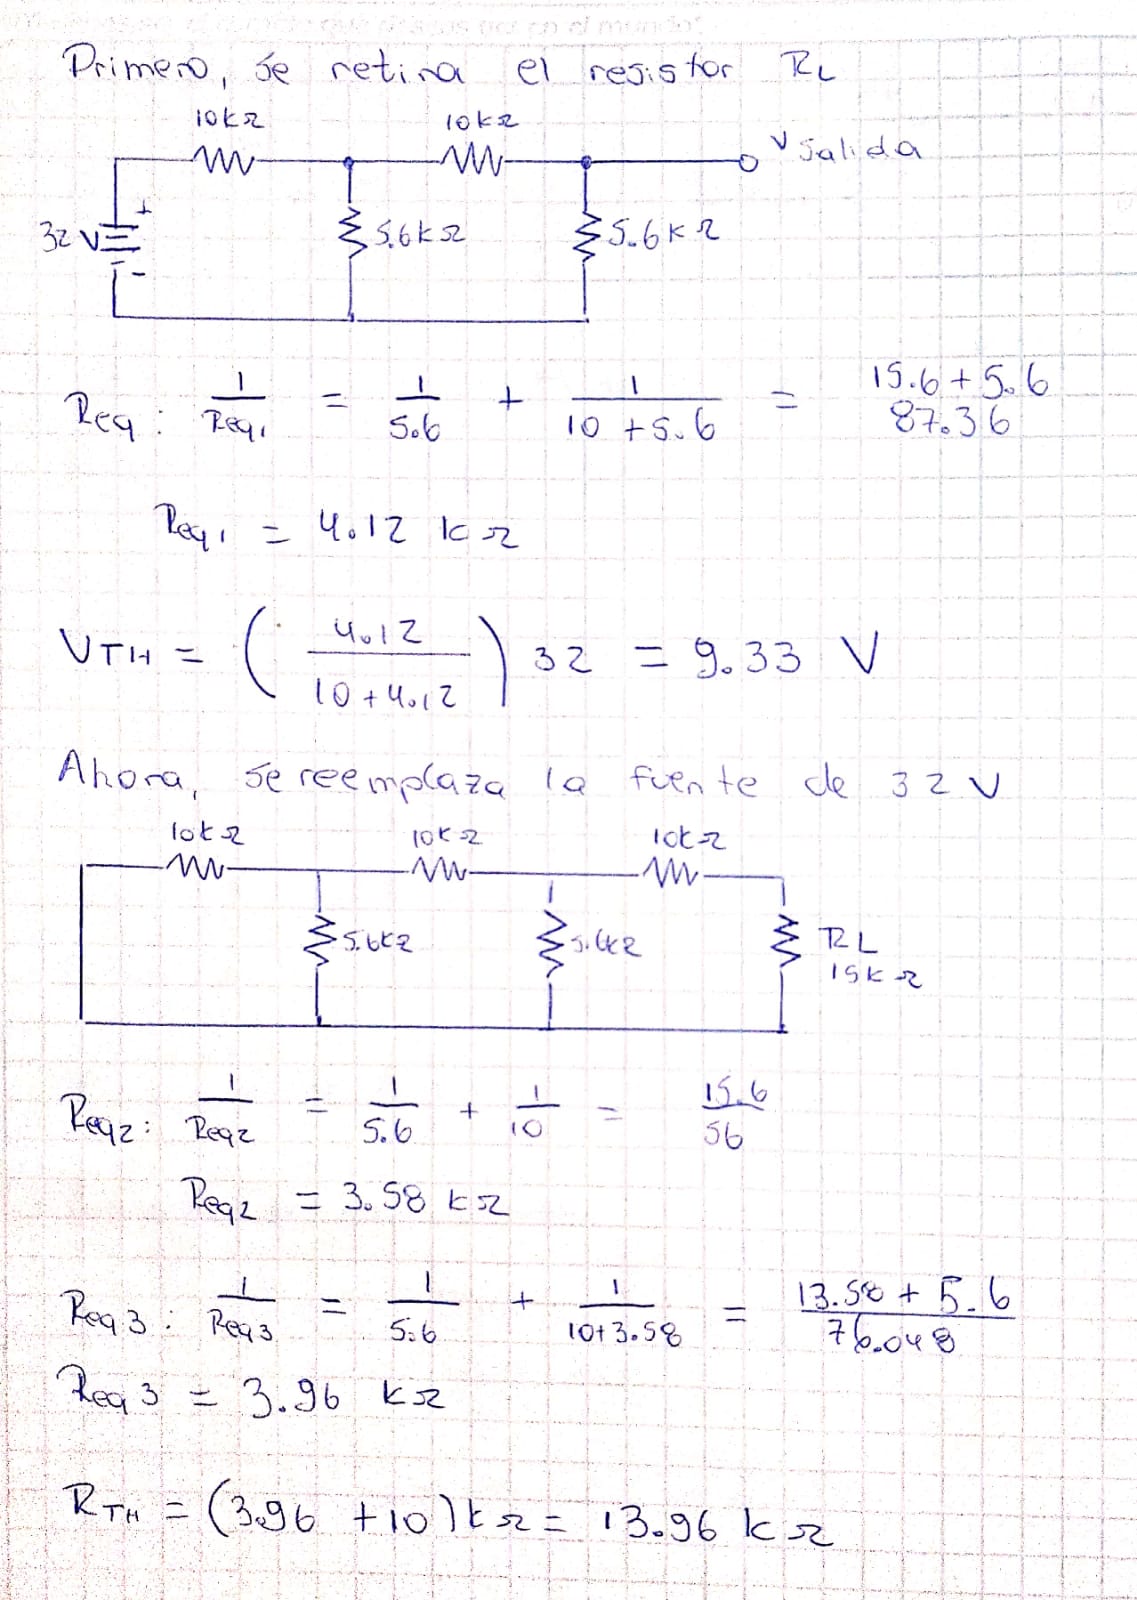 Primero, se retira el resistor RL
10kΩ 10kΩ
V salida
32 V + - 5.6kΩ 5.6KΩ
Req: 1/Req1 = 1/5.6 + 1/(10 + 5.6) = 15.6 + 5.6 87.36
Req1 = 4.12 kΩ
VTH = (4.12/(10+4.12)) 32 = 9.33 V
Ahora, se reemplaza la fuente de 32 V
10kΩ 10KΩ 10kΩ
5.6KΩ 5.6KΩ RL
15KΩ
Req2: 1/Req2 = 1/5.6 + 1/10 = 15.6/56
Req2 = 3.58 kΩ
Req3: 1/Req3 = 1/5.6 + 1/(10+3.58) = (13.58 + 5.6)/76.048
Req3 = 3.96 kΩ
RTH = (3.96 + 10)kΩ = 13.96 kΩ